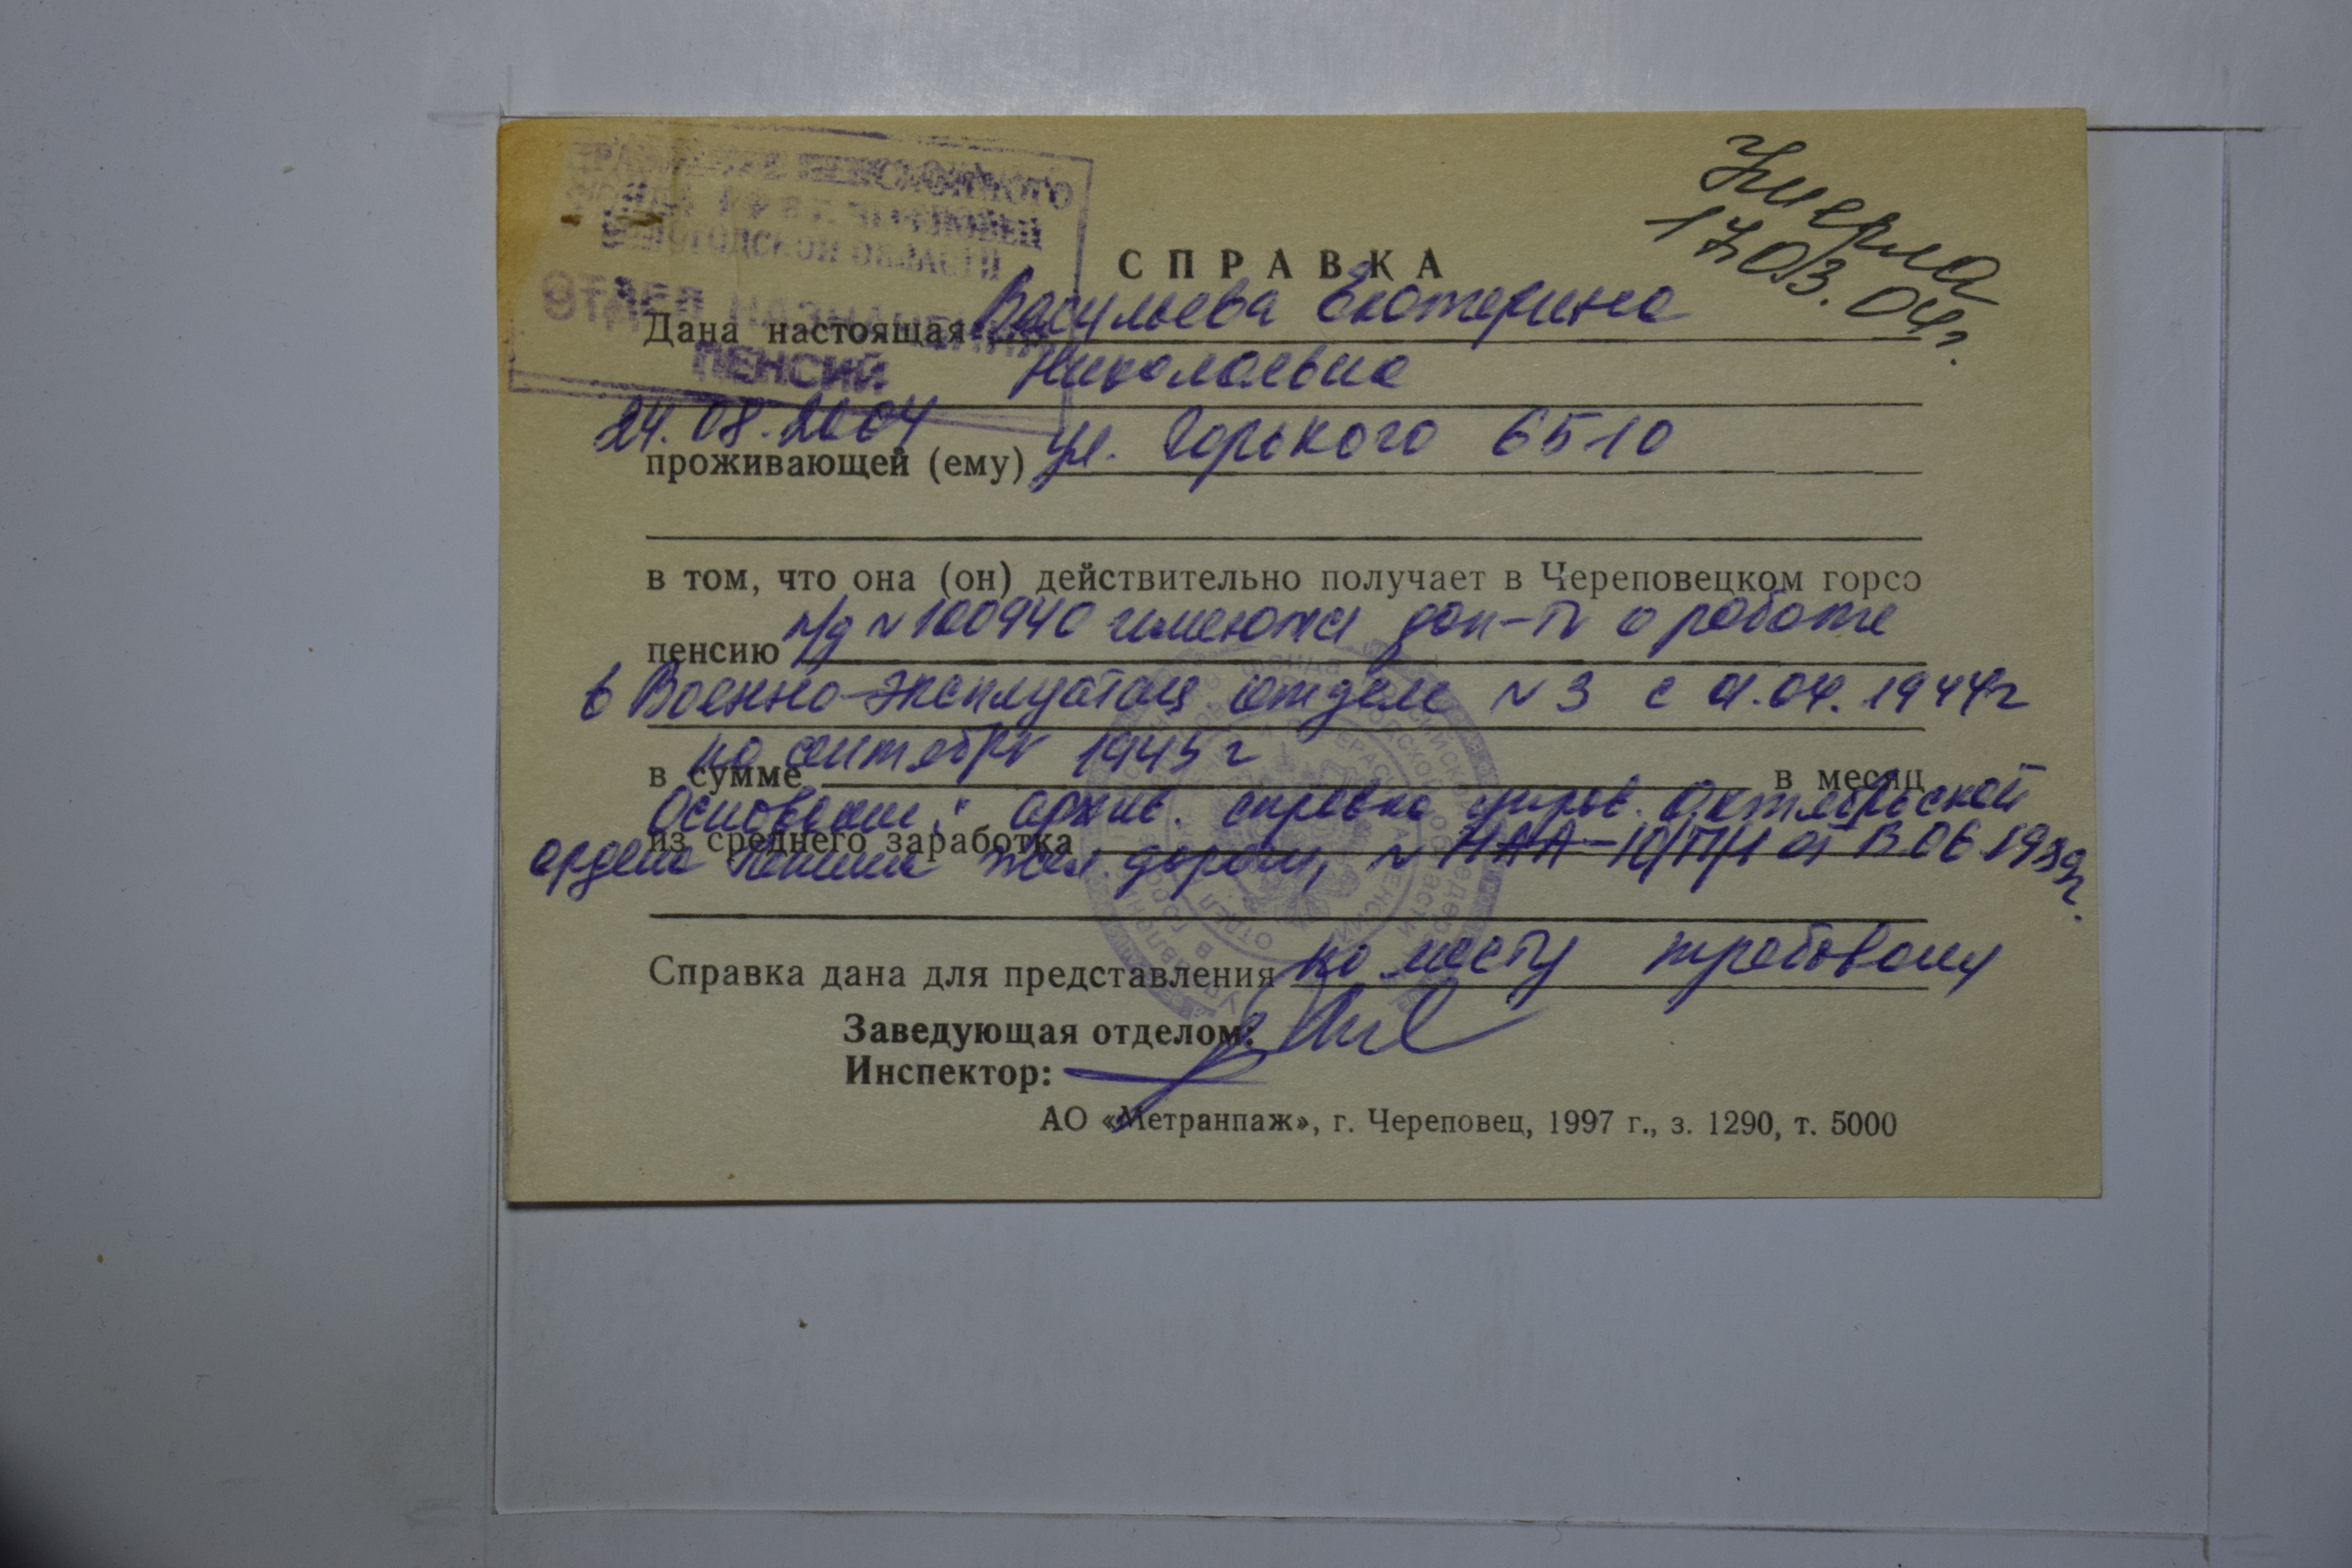 ПЕНСИОННОГО
ФОНДА РФ в г. ЧЕРЕПОВЕЦ
ВОЛОГОДСКОЙ ОБЛАСТИ
ОТДЕЛ НАЗНАЧЕНИЯ
ПЕНСИЙ
24.08.2004
умерла
17.03.04г.
СПРАВКА
Дана настоящая Васильева Екатерина
Николаевна
проживающей (ему) ул. Горького 65-10
в том, что она (он) действительно получает в Череповецком горсо
пенсию п/д N 100940 имеются док-ты о работе
в Военно-эксплуатац отделе N 3 с 01.04.1944г
в сумме по сентябрь 1945 г в месяц
Основание: архив. справка управ. Октябрьской
из среднего заработка
ордена Ленина жел. дороги, N от 13.06.1989г.
Справка дана для представления по месту требования
Заведующая отделом:
Инспектор:
АО «Метранпаж», г. Череповец, 1997 г., з. 1290, т. 5000